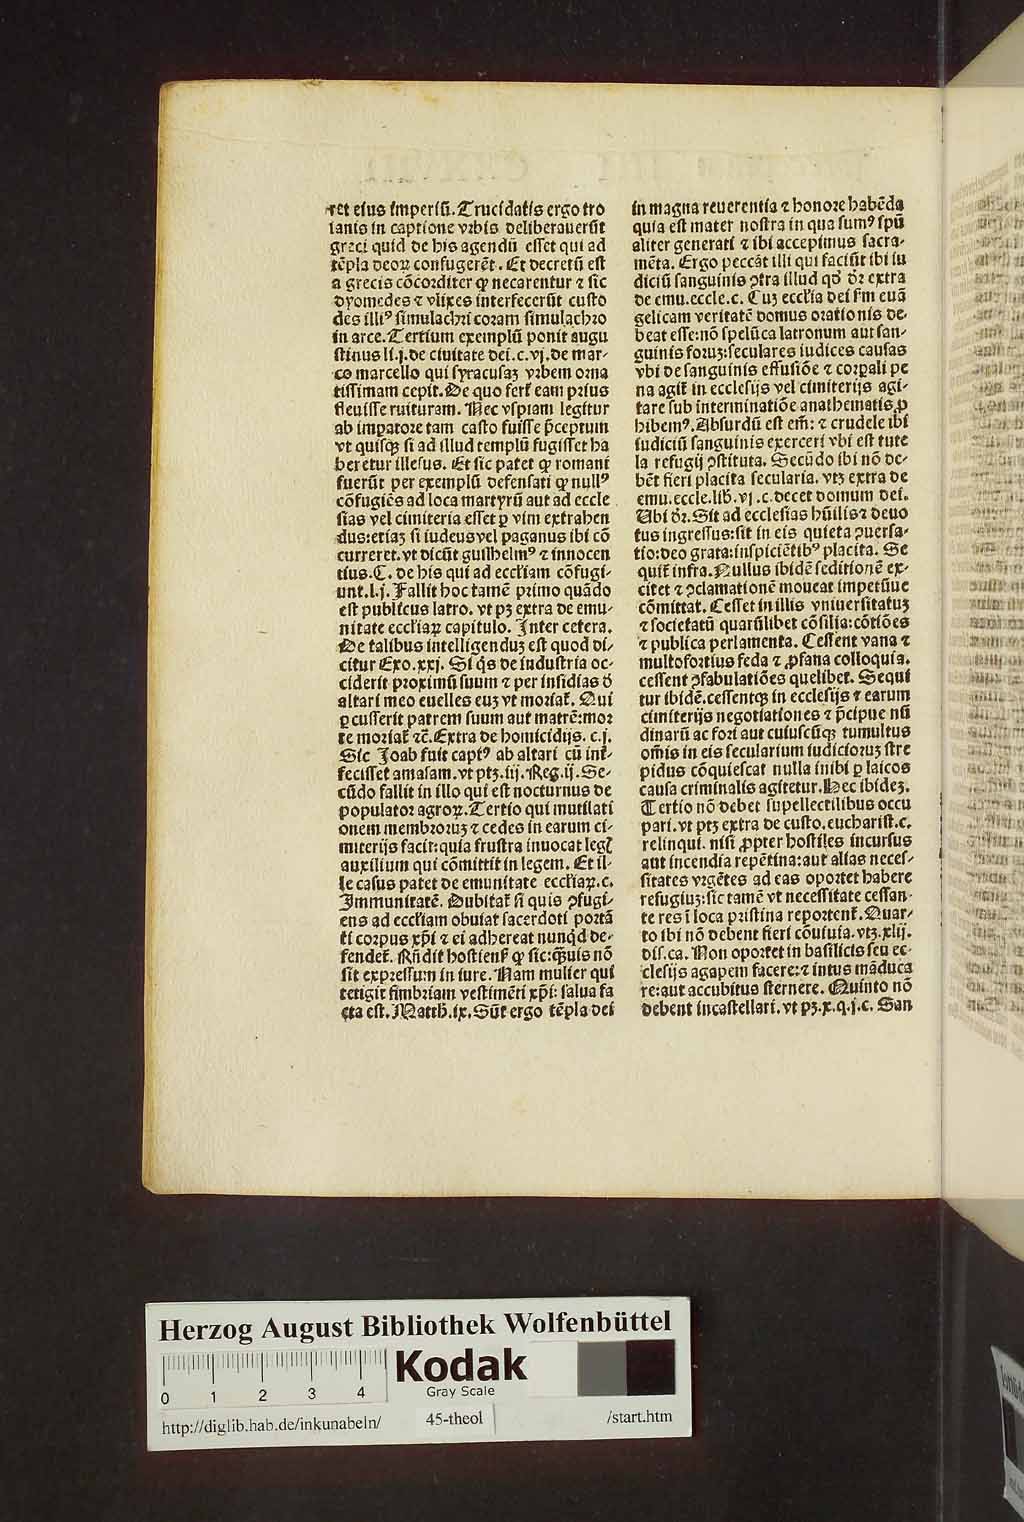 ret eius imperiū. Trucidatis ergo tro
ianis in captione vrbis deliberauerūt
greci quid de his agendū esset qui ad
tēpla deoꝝ confugerēt. Et decretū est
a grecis cōcorditer ꝙ necarentur ⁊ sic
dyomedes ⁊ vlixes interfecerūt custo
des illiꝰ simulachri coram simulachro
in arce. Tertium exemplū ponit augu
stinus li.j.de ciuitate dei.c.vj.de mar⸗
co marcello qui syracusaꝫ vrbem orna
tissimam cepit. De quo fert᷑ eam prius
fleuisse ruituram. Nec vspiam legitur
ab impatore tam casto fuisse p̄ceptum
vt quisqꝫ si ad illud templū fugisset ha
beretur illesus. Et sic patet ꝙ romani
fuerūt per exemplū defensati ꝙ nullꝰ
cōfugiēs ad loca martyrū aut ad eccle
sias vel cimiteria esset ꝑ vim extrahen
dus:etiaꝫ si iudeus vel paganus ibi cō
curreret. vt dicūt guilhelmꝰ ⁊ innocen
tius. C. de his qui ad eccl'iam cōfugi⸗
unt.l.j. Fallit hoc tamē primo quādo
est publicus latro. vt pꝫ extra de emu⸗
nitate eccl'iaꝝ capitulo. Inter cetera.
De talibus intelligenduꝫ est quod di⸗
citur Exo.xxj. Si q̇s de industria oc⸗
ciderit proximū suum ⁊ per insidias ð
altari meo euelles euꝫ vt moriat᷑. Qui
ꝑcusserit patrem suum aut matrē:mor
te moriat᷑ ⁊c̄. Extra de homicidijs. c.j.
Sic Joab fuit captꝰ ab altari cū int᷑⸗
fecisset amasam. vt ptꝫ.iij. Reg.ij. Se⸗
cūdo fallit in illo qui est nocturnus de
populator agroꝝ. Tertio qui mutilati
onem membroruꝫ ⁊ cedes in earum ci⸗
miterijs facit:quia frustra inuocat legꝭ
auxilium qui cōmittit in legem. Et il⸗
le casus patet de emunitate eccl'iaꝝ.c.
Immunitatē. Dubitat᷑ si quis ꝯfugi⸗
ens ad eccl'iam obuiat sacerdoti portā
ti corpus xp̄i ⁊ ei adhereat nunqd de⸗
fendet᷑. Rn̄dit hostiens̄ ꝙ sic:qͣuis nō
sit expressum in iure. Nam mulier qui
tetigit fimbriam vestimēti xp̄i: salua fa
cta est. Matth.ix. Sūt ergo tēpla dei
in magna reuerentia ⁊ honore habēda
quia est mater nostra in qua sumꝰ spū
aliter generati ⁊ ibi accepimus sacra⸗
mēta. Ergo peccāt illi qui faciūt ibi iu
diciū sanguinis ꝯtra illud qd̄ dr̄ extra
de emu.eccle.c. Cuꝫ eccl'ia dei ẜm euā
gelicam veritatē domus orationis de⸗
beat esse:nō spelūca latronum aut san⸗
guinis foruꝫ:seculares iudices causas
vbi de sanguinis effusiōe ⁊ corꝑali pe
na agit᷑ in ecclesijs vel cimiterijs agi⸗
tare sub interminatiōe anathematis ꝓ
hibemꝰ. Absurdū est em̄: ⁊ crudele ibi
iudiciū sanguinis exerceri vbi est tute
la refugij ꝯstituta. Secūdo ibi nō de⸗
bēt fieri placita secularia. vtꝫ extra de
emu.eccle.lib̄. vj .c.decet domum dei.
Ubi dr̄. Sit ad ecclesias hūilis ⁊ deuo
tus ingressus:sit in eis quieta ꝯuersa⸗
tio:deo grata:inspiciētibꝰ placita. Se
quit᷑ infra. Nullus ibidē seditionē ex⸗
citet ⁊ ꝯclamationē moueat impetūue
cōmittat. Cesset in illis vniuersitatuꝫ
⁊ societatū quarūlibet cōsilia:cōtiōes
⁊ publica perlamenta. Cessent vana ⁊
multofortius feda ⁊ ꝓfana colloquia.
cessent ꝯfabulatiōes quelibet. Sequi
tur ibidē.cessentqꝫ in ecclesijs ⁊ earum
cimiterijs negotiationes ⁊ p̄cipue nū
dinarū ac fori aut cuiuscūqꝫ tumultus
om̄is in eis secularium iudicioruꝫ stre
pidus cōquiescat nulla inibi ꝑ laicos
causa criminalis agitetur. Hec ibideꝫ.
Tertio nō debet supellectilibus occu
pari. vt ptꝫ extra de custo. eucharist.c.
relinqui. nisi ꝓpter hostiles incursus
aut incendia repētina:aut alias neces⸗
sitates vrgētes ad eas oportet habere
refugiuꝫ:sic tamē vt necessitate cessan⸗
te res ī loca pristina reportent᷑. Quar⸗
to ibi nō debent fieri cōuiuia. vtꝫ.xlij.
dis.ca. Non oportet in basilicis seu ec⸗
clesijs agapem facere:⁊ intus māduca
re:aut accubitus sternere. Quinto nō
debent incastellari. vt pꝫ.x.q.j.c. San
Herzog August Bibliothek Wolfenbüttel
0 1 2 3 4
Kodak
Gray Scale
http://diglib.hab.de/inkunabeln/ 45-theol /start.htm